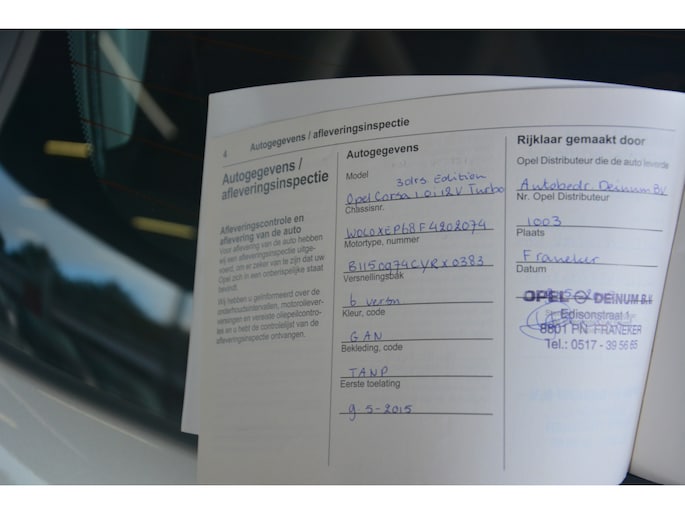 4 Autogegevens / afleveringsinspectie
Autogegevens /
afleveringsinspectie
Afleveringscontrole en
aflevering van de auto
Voor aflevering van de auto hebben
wij een afleveringsinspectie uitge-
voerd, om er zeker van te zijn dat uw
Opel zich in een onberispelijke staat
bevindt.
Wij hebben u geïnformeerd over de
onderhoudsintervallen, motoroliever-
versingen en vereiste oliepeilcontro-
les en u hebt de controlelijst van de
afleveringsinspectie ontvangen.
Autogegevens
Model
3drs Edition
Opel Corsa 1.0i 12V Turbo
Chassisnr.
W0L0XEP68F4202074
Motortype, nummer
Versnellingsbak
6 versn
Kleur, code
GAN
Bekleding, code
TANP
Eerste toelating
9 5-2015
Rijklaar gemaakt door
Opel Distributeur die de auto leverde
Autobedr. Deinum BV
Nr. Opel Distributeur
1003
Plaats
Franeker
Datum
OPEL DEINUM B.V.
Edisonstraat 1
8801 PN FRANEKER
Tel.: 0517 - 39 56 65